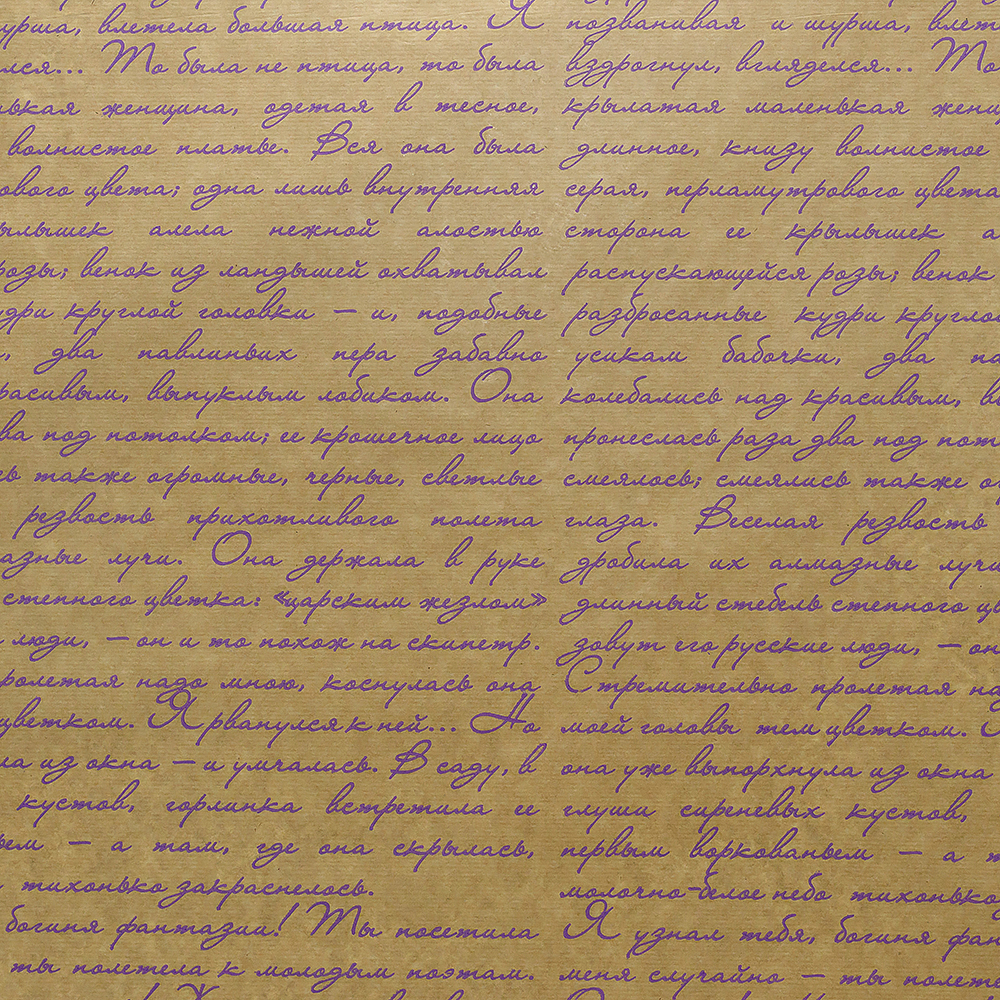 шурша, влетела большая птица. Я
лся... То была не птица, то была
нькая женщина, одетая в тесное,
волнистое платье. Вся она была
ового цвета; одна лишь внутренняя
ылышек алела нежной алостью
розы; венок из ландышей охватывал
удри круглой головки — и, подобные
, два павлиньих пера забавно
расивым, выпуклым лобиком. Она
ва под потолком; ее крошечное лицо
сь также огромные, черные, светлые
резвость прихотливого полета
азные лучи. Она держала в руке
степного цветка: «царским жезлом»
люди, — он и то похож на скипетр.
ролетая надо мною, коснулась она
цветком. Я рванулся к ней... Но
ла из окна — и умчалась. В саду, в
кустов, горлинка встретила ее
ьем — а там, где она скрылась,
тихонько закраснелось.
богиня фантазии! Ты посетила
ты полетела к молодым поэтам.
позванивая и шурша, влет
вздрогнул, вгляделся... То
крылатая маленькая женщ
длинное, книзу волнистое
серая, перламутрового цвета
сторона ее крылышек а
распускающейся розы; венок
разбросанные кудри кругло
усикам бабочки, два па
колебались над красивым, в
пронеслась раза два под пот
смеялось; смеялись также о
глаза. Веселая резвость
дробила их алмазные лучи
длинный стебель степного цв
зовут его русские люди, — он
Стремительно пролетая на
моей головы тем цветком.
она уже выпорхнула из окна
глуши сиреневых кустов,
первым воркованьем — а т
молочно-белое небо тихонько
Я узнал тебя, богиня фан
меня случайно — ты полете